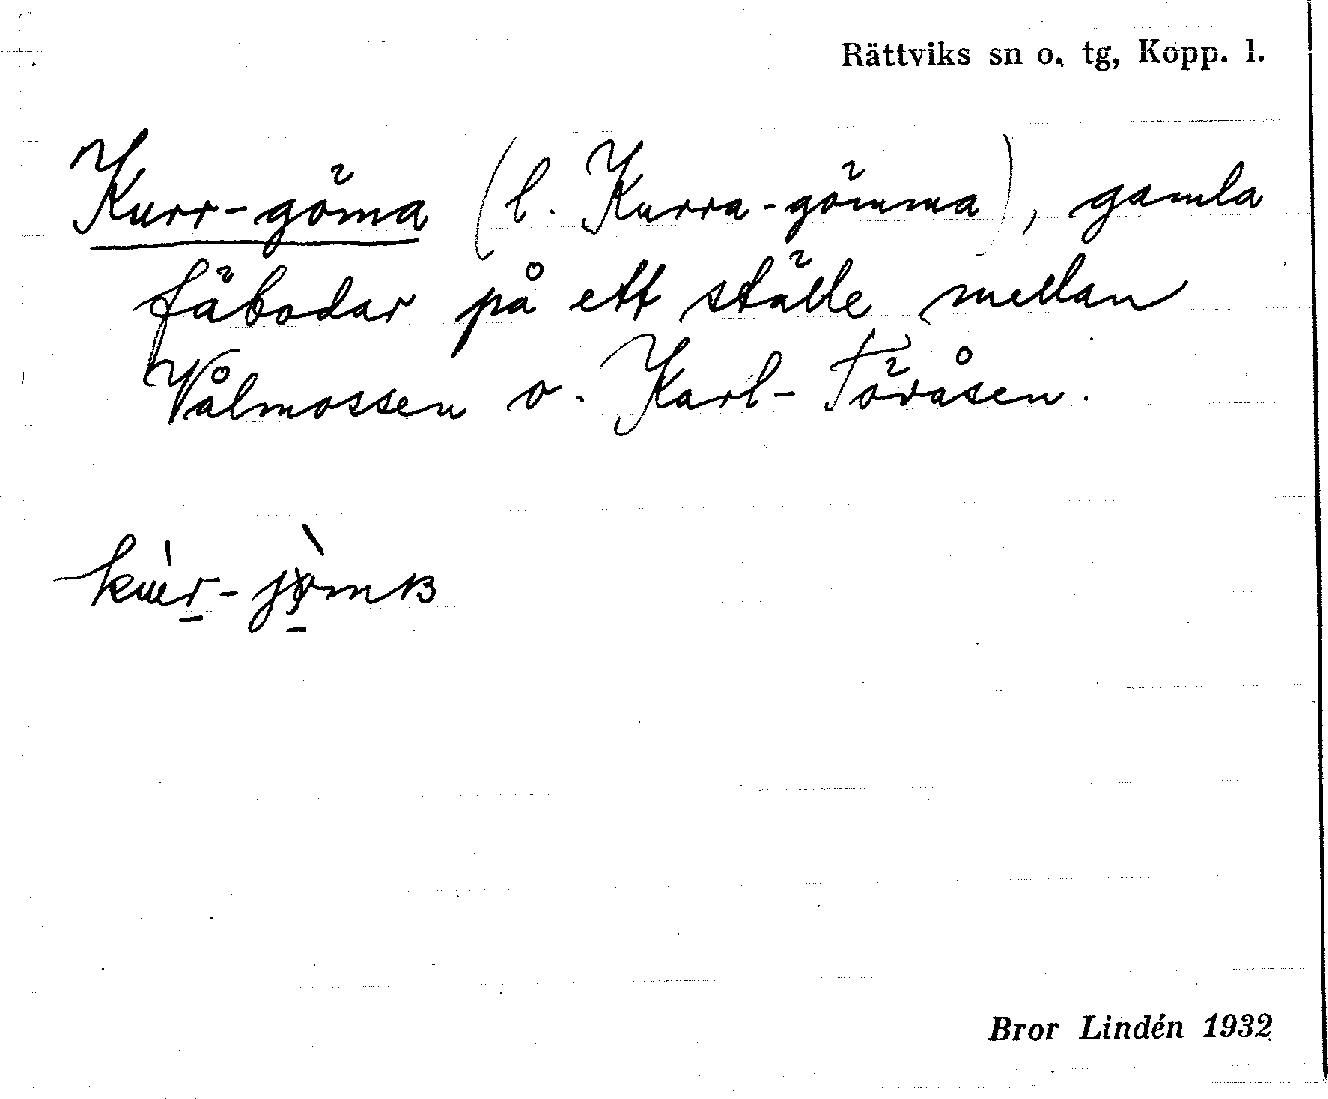 Rättviks sn o. tg, Kopp. l.
Kurr-göma (l. Kurra-gömma), gamla
fäbodar på ett ställe mellan
Vålmossen o. Karl-Töråsen.
Bror Lindén 1932